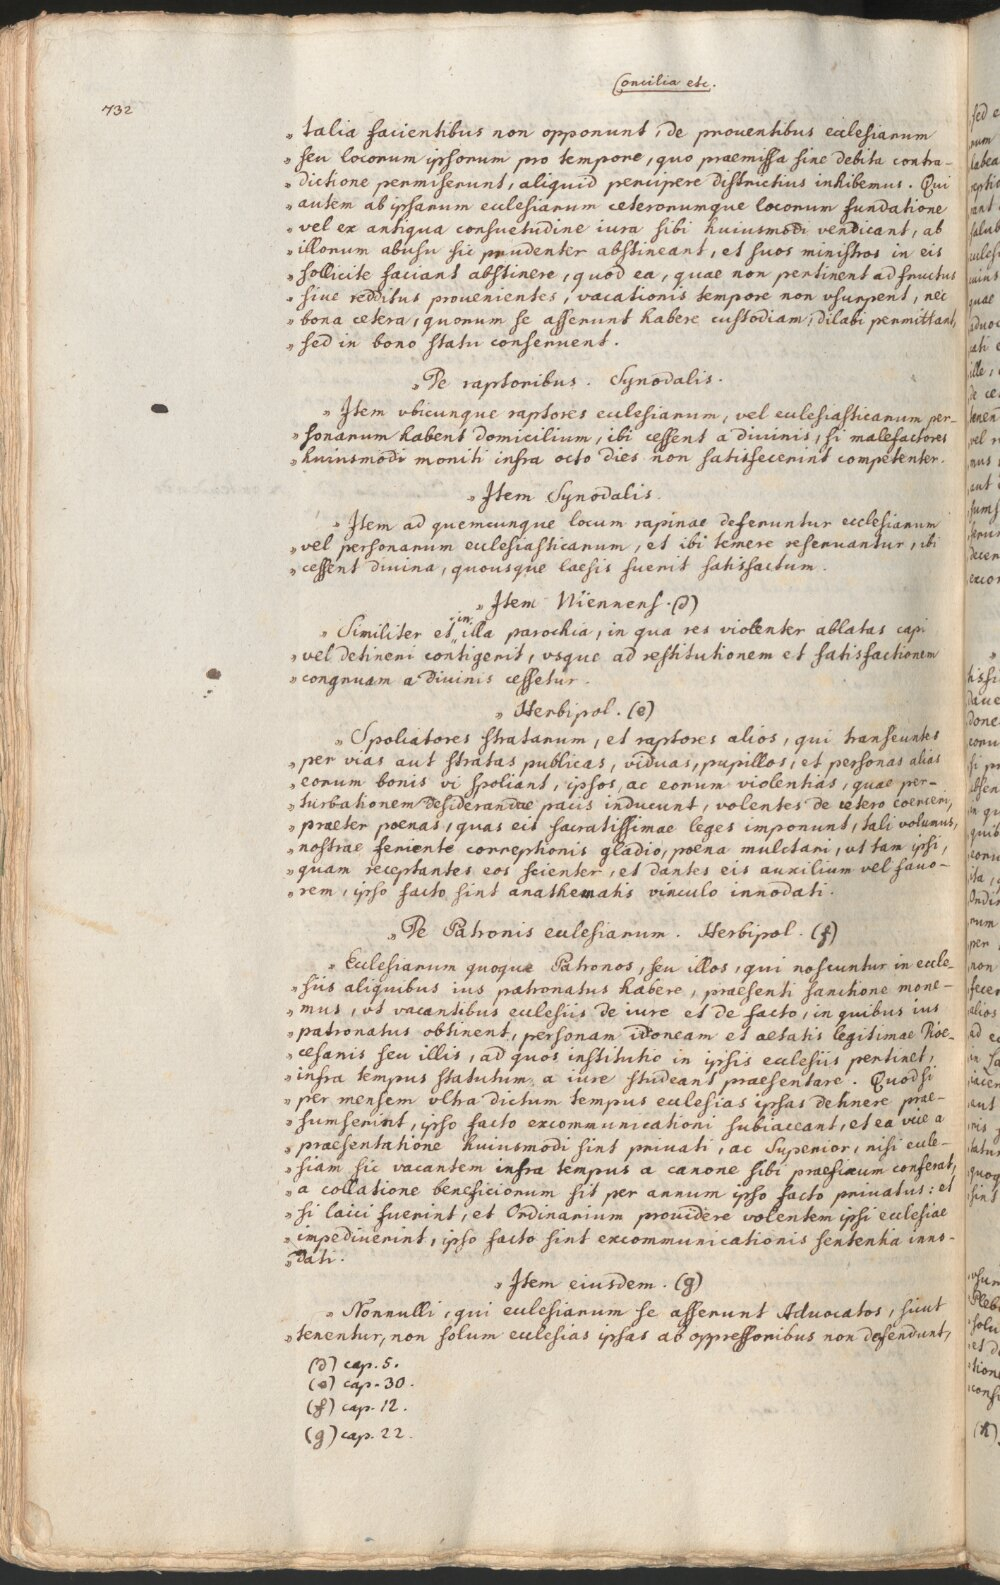 Concilia etc.
732
„ talia facientibus non opponunt, de prouentibus ecclesiarum
„ seu locorum ipsorum pro tempore, quo praemissa sine debita contra-
„ dictione permiserunt, aliquid percipere districtius inhibemus. Qui
„ autem ab ipsarum ecclesiarum ceterorumque locorum fundatione
„ vel ex antiqua consuetudine iura sibi huiusmodi vendicant, ab
„ illorum abusu sic prudenter abstineant, et suos ministros in eis
„ sollicite faciant abstinere, quod ea, quae non pertinent ad fructus
„ siue redditus prouenientes, vacationis tempore non vsurpent, nec
„ bona cetera, quorum se asserunt habere custodiam, dilabi permittant,
„ sed in bono statu conseruent.
„ De raptoribus. Synodalis.
„ Item vbicunque raptores ecclesiarum, vel ecclesiasticarum per-
„ sonarum habent domicilium, ibi cessent a diuinis, si malefactores
„ huiusmodi moniti infra octo dies non satisfecerint competenter.
„ Item Synodalis.
„ Item ad quemcunque locum rapinae deferuntur ecclesiarum
„ vel personarum ecclesiasticarum, et ibi temere reseruantur, ibi
„ cessent diuina, quousque laesis fuerit satisfactum.
„ Item Viennens. (d)
„ Similiter et in illa parochia, in qua res violenter ablatas capi
„ vel detineri contigerit, vsque ad restitutionem et satisfactionem
„ congruam a diuinis cessetur.
„ Herbipol. (e)
„ Spoliatores stratarum, et raptores alios, qui transeuntes
„ per vias aut stratas publicas, viduas, pupillos, et personas alias
„ eorum bonis vi spoliant, ipsos, ac eorum violentias, quae per-
„ turbationem desiderandae pacis inducunt, volentes de cetero coerceri,
„ praeter poenas, quas eis sacratissimae leges imponunt, tali volumus,
„ nostrae feriente correptionis gladio, poena mulctari, vt tam ipsi,
„ quam receptantes eos scienter, et dantes eis auxilium vel fauo-
„ rem, ipso facto sint anathematis vinculo innodati.
„ De Patronis ecclesiarum. Herbipol. (f)
„ Ecclesiarum quoque Patronos, seu illos, qui noscuntur in eccle-
„ siis aliquibus ius patronatus habere, praesenti sanctione mone-
„ mus, vt vacantibus ecclesiis de iure et de facto, in quibus ius
„ patronatus obtinent, personam idoneam et aetatis legitimae Dioe-
„ cesanis seu illis, ad quos institutio in ipsis ecclesiis pertinet,
„ infra tempus statutum a iure studeant praesentare. Quodsi
„ per mensem vltra dictum tempus ecclesias ipsas detinere prae-
„ sumserint, ipso facto excommunicationi subiaceant, et ea vice a
„ praesentatione huiusmodi sint priuati, ac Superior, nisi eccle-
„ siam sic vacantem infra tempus a canone sibi praefixum conferat,
„ a collatione beneficiorum sit per annum ipso facto priuatus: et
„ si laici fuerint, et Ordinarium prouidere volentem ipsi ecclesiae
„ impediuerint, ipso facto sint excommunicationis sententia inno-
„ dati.
„ Item eiusdem. (g)
„ Nonnulli, qui ecclesiarum se asserunt Aduocatos, sicut
„ tenentur, non solum ecclesias ipsas ab oppressoribus non defendunt,
(d) cap. 5.
(e) cap. 30.
(f) cap. 12.
(g) cap. 22.